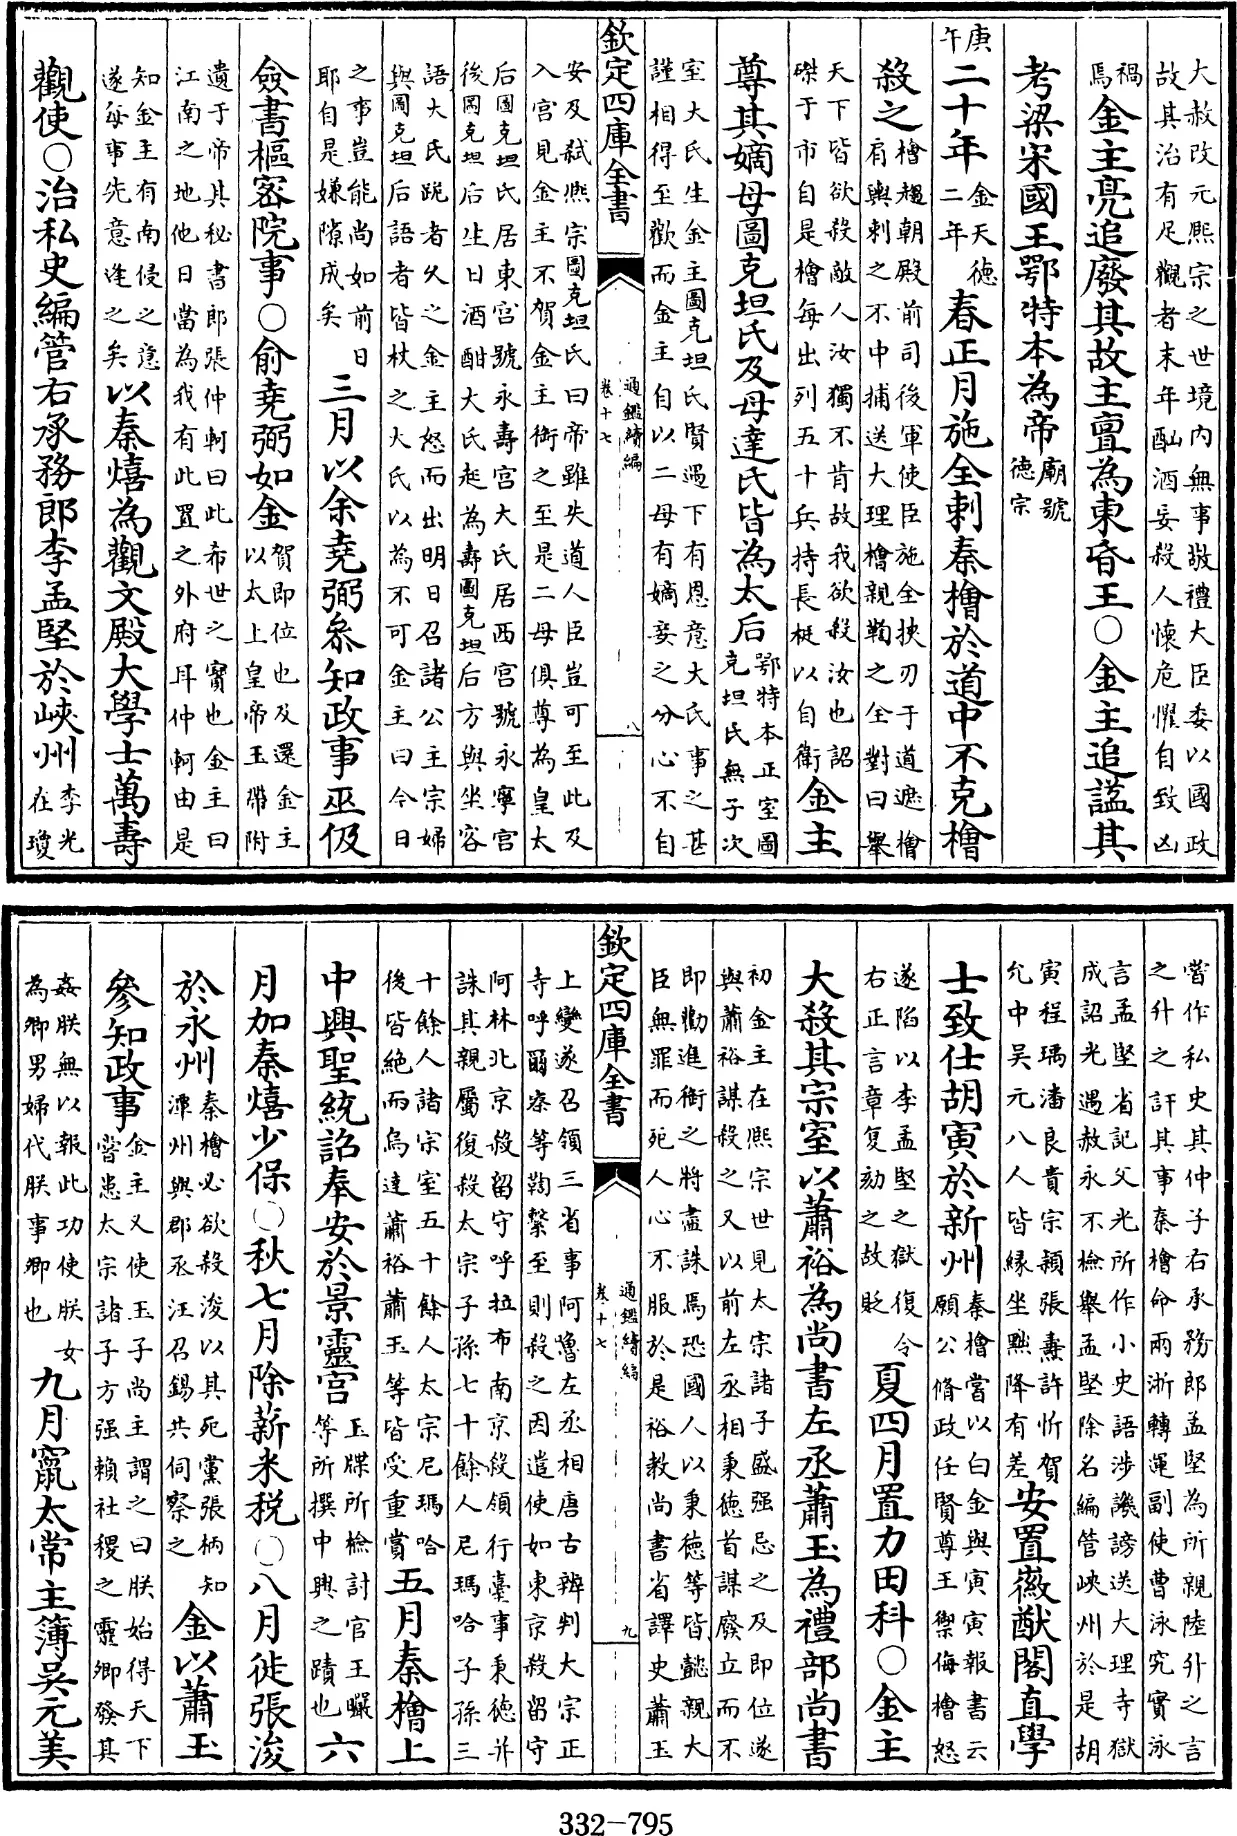 大赦改元熙宗之世境内無事敬禮大臣委以國政
故其治有足觀者末年酗酒妄殺人懐危懼自致凶
禍焉金主亮追廢其故主亶為東昏王○金主追諡其
考梁宋國王鄂特本為帝廟號德宗
庚午二十年金天德二年春正月施全刺秦檜於道中不克檜
殺之檜趨朝殿前司後軍使臣施全挾刃于道遮檜
肩輿刺之不中捕送大理檜親鞫之全對曰舉
天下皆欲殺敵人汝獨不肯故我欲殺汝也詔
磔于市自是檜每出列五十兵持長梃以自衛金主
尊其嫡母圖克坦氏及母達氏皆為太后鄂特本正室圖克坦氏無子次
室大氏生金主圖克坦氏賢遇下有恩意大氏事之甚
謹相得至歡而金主自以二母有嫡妾之分心不自
欽定四庫全書 通鑑續編 卷十七 八
安及弑熙宗圖克坦氏曰帝雖失道人臣豈可至此及
入宫見金主不賀金主銜之至是二母俱尊為皇太
后圖克坦氏居東宫號永壽宫大氏居西宫號永寧宫
後圖克坦后生日酒酣大氏起為壽圖克坦后方與坐客
語大氏跽者久之金主怒而出明日召諸公主宗婦
與圖克坦后語者皆杖之大氏以為不可金主曰今日
之事豈能尚如前日耶自是嫌隙成矣三月以余堯弼叅知政事巫伋
僉書樞密院事○俞堯弼如金賀即位也及還金主以太上皇帝玉帶附
遺于帝其秘書郎張仲軻曰此希世之寳也金主曰
江南之地他日當為我有此置之外府耳仲軻由是
知金主有南侵之意遂每事先意逢之矣以秦熺為觀文殿大學士萬壽
觀使○治私史編管右承務郎李孟堅於峽州李光在瓊
嘗作私史其仲子右承務郎孟堅為所親陸升之言
之升之訐其事秦檜命兩浙轉運副使曹泳究實泳
言孟堅省記父光所作小史語涉譏謗送大理寺獄
成詔光遇赦永不檢舉孟堅除名編管峽州於是胡
寅程瑀潘良貴宗穎張燾許忻賀
允中吳元八人皆縁坐黜降有差安置徽猷閣直學
士致仕胡寅於新州秦檜當以白金與寅寅報書云願公脩政任賢尊王禦侮檜怒
遂陷以李孟堅之獄復令右正言章复劾之故貶夏四月置力田科○金主
大殺其宗室以蕭裕為尚書左丞蕭玉為禮部尚書
初金主在熙宗世見太宗諸子盛强忌之及即位遂
與蕭裕謀殺之又以前左丞相秉德首謀廢立而不
即勸進銜之將盡誅焉恐國人以秉德等皆懿親大
臣無罪而死人心不服於是裕教尚書省譯史蕭玉
欽定四庫全書 通鑑續編 卷十七 九
上變遂召領三省事阿魯左丞相唐古辨判大宗正
寺呼爾察等鞫繫至則殺之因遣使如東京殺留守
阿林北京殺留守呼拉布南京殺領行臺事秉德并
誅其親屬復殺太宗子孫七十餘人尼瑪哈子孫三
十餘人諸宗室五十餘人太宗尼瑪哈
後皆絶而烏達蕭裕蕭玉等皆受重賞五月秦檜上
中興聖統詔奉安於景靈宫玉牒所檢討官王曮等所撰中興之蹟也六
月加秦熺少保○秋七月除薪米税○八月徙張浚
於永州秦檜必欲殺浚以其死黨張柄知潭州與郡丞汪召錫共伺察之金以蕭玉
參知政事金主又使玉子尚主謂之曰朕始得天下嘗患太宗諸子方强賴社稷之靈卿發其
姦朕無以報此功使朕女為卿男婦代朕事卿也九月竄太常主簿吳元美
332-795